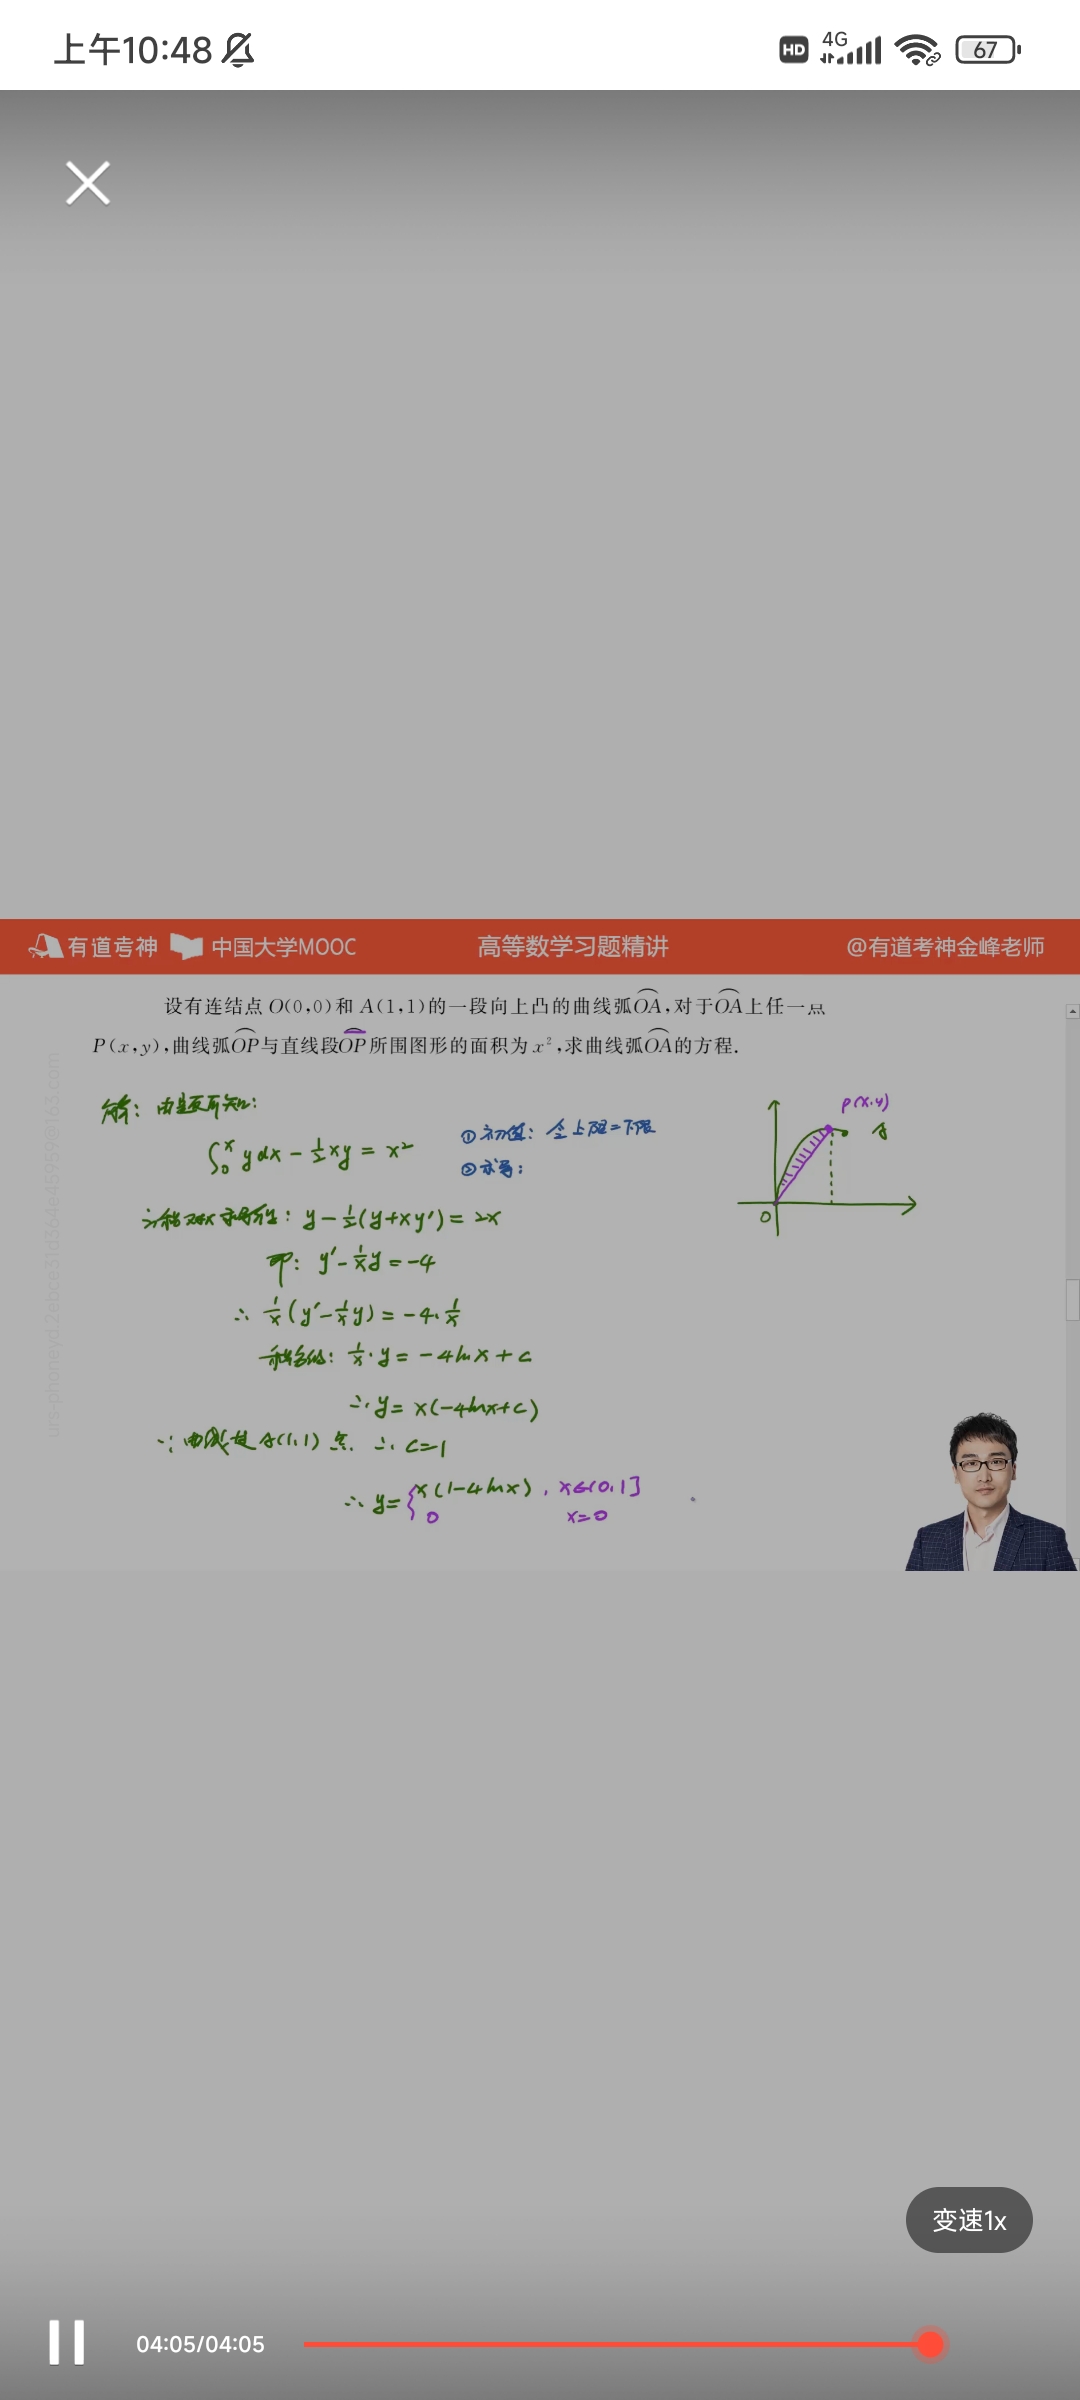 上午10:48
HD 4G 67
有道考神 中国大学MOOC 高等数学习题精讲 @有道考神金峰老师
设有连结点 O(0,0)和 A(1,1)的一段向上凸的曲线弧OA,对于OA上任一点
P(x,y),曲线弧OP与直线段OP所围图形的面积为 x²,求曲线弧OA的方程.
解: 由题可知:
∫₀ˣ ydx - ½xy = x²
① 初值: 令上限=下限
② 求导:
y - ½(y+xy') = 2x
即: y' - 1/x y = -4
∴ 1/x (y' - 1/x y) = -4·1/x
1/x · y = -4lnx + c
∴ y = x(-4lnx+c)
∵ 曲线过A(1,1)点 ∴ c=1
∴ y= { x(1-4lnx), x∈(0,1]
0 x=0
P(x,y)
A
O
变速1x
04:05/04:05